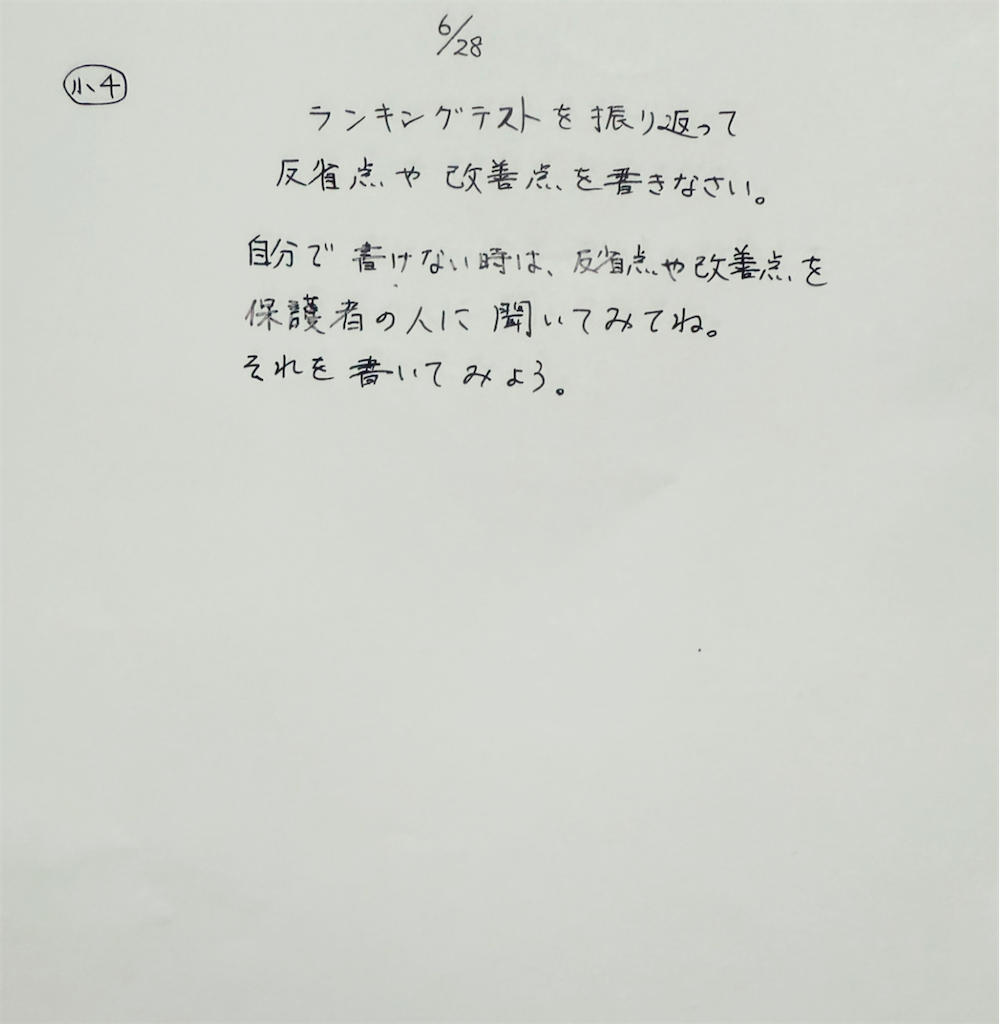 6/28
小4
ランキングテストを振り返って
反省点や改善点を書きなさい。
自分で書けない時は、反省点や改善点を
保護者の人に聞いてみてね。
それを書いてみよう。